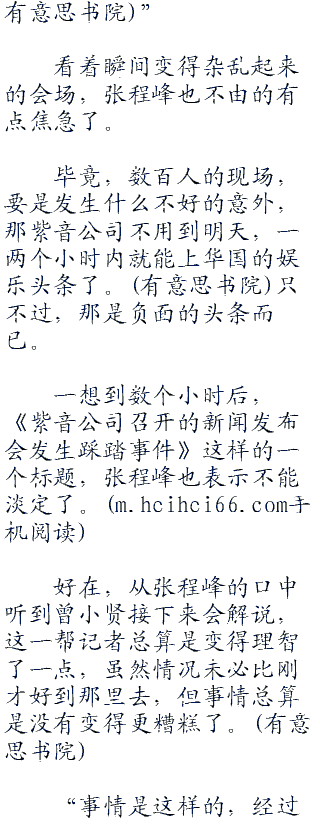 有意思书院)”
看着瞬间变得杂乱起来
的会场，张程峰也不由的有
点焦急了。
毕竟，数百人的现场，
要是发生什么不好的意外，
那紫音公司不用到明天，一
两个小时内就能上华国的娱
乐头条了。(有意思书院)只
不过，那是负面的头条而
已。
一想到数个小时后，
《紫音公司召开的新闻发布
会发生踩踏事件》这样的一
个标题，张程峰也表示不能
淡定了。(m.hcihci66.com手
机阅读)
好在，从张程峰的口中
听到曾小贤接下来会解说，
这一帮记者总算是变得理智
了一点，虽然情况未必比刚
才好到那里去，但事情总算
是没有变得更糟糕了。(有意
思书院)
“事情是这样的，经过